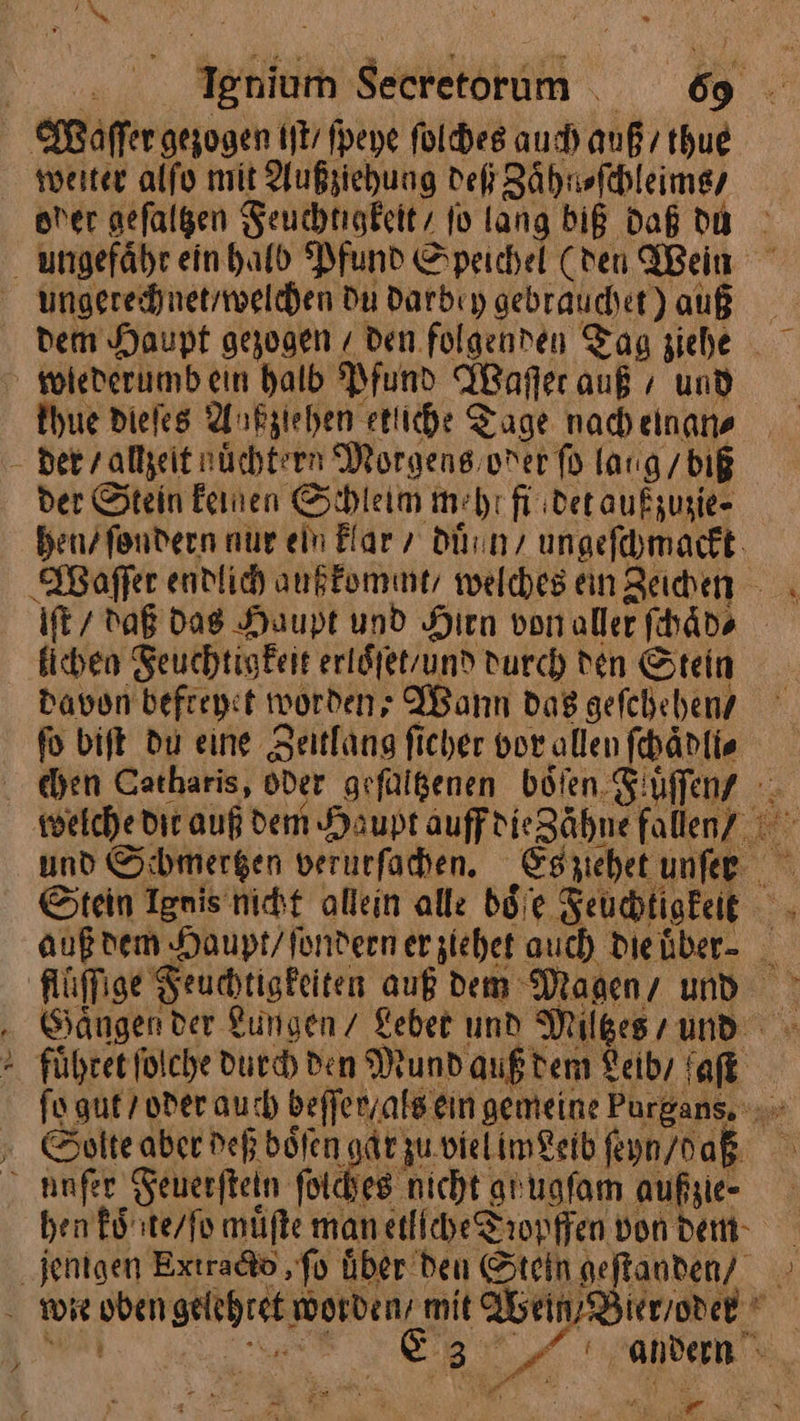 Ignium Secretorum 69
Waſſer gezogen iſt/ ſpeye ſolches auch auß / thue
weiter alſo mit Außziehung deß Zaͤhn⸗ſchleims/
oder geſaltzen Feuchtigkeit / ſo lang biß daß du
ungefaͤhr ein halb Pfund Speichel (den Wein
ungerechnet/welchen du darbey gebrauchet) auß
dem Haupt gezogen / den folgenden Tag ziehe
wiederumb ein halb Pfund Waſſer auß / und
thue dieſes Außziehen etliche Tage nach einan⸗
der / allzeit nuͤchtern Morgens oder ſo lang / biß
der Stein keinen Schleim mehr findet außzuzie-
hen/ ſondern nur ein klar / duͤnn / ungeſchmackt
Waſſer endlich außkommt/ welches ein Zeichen
iſt / daß das Haupt und Hirn von aller ſchaͤd⸗
lichen Feuchtigkeit erloͤſet/und durch den Stein
davon befreyet worden; Wann das geſchehen/
ſo biſt du eine Zeitlang ſicher vor allen ſchaͤdli⸗
chen Catharis, oder geſaltzenen boͤſen Fluͤſſen/
welche dir auß dem Haupt auff die Zaͤhne fallen/
und Schmertzen verurſachen. Es ziehet unſer
Stein Ignis nicht allein alle boͤſe Feuchtigkeit
auß dem Haupt/ ſondern er ziehet auch die uͤber-
fluͤſſige Feuchtigkeiten auß dem Magen / und
Gaͤngen der Lungen / Leber und Miltzes / und
fuͤhret ſolche durch den Mund auß dem Leib/ faſt
ſo gut / oder auch beſſer/als ein gemeine Purgans.
Solte aber deß boͤſen gar zu viel im Leib ſeyn/daß
unſer Feuerſtein ſolches nicht gnugſam außzie-
hen koͤnte/ſo muͤſte man etliche Tropffen von dem
jenigen Extracto, ſo uͤber den Stein geſtanden/
wie oben gelehret worden/ mit Wein/Bier/oder
E 3 andern